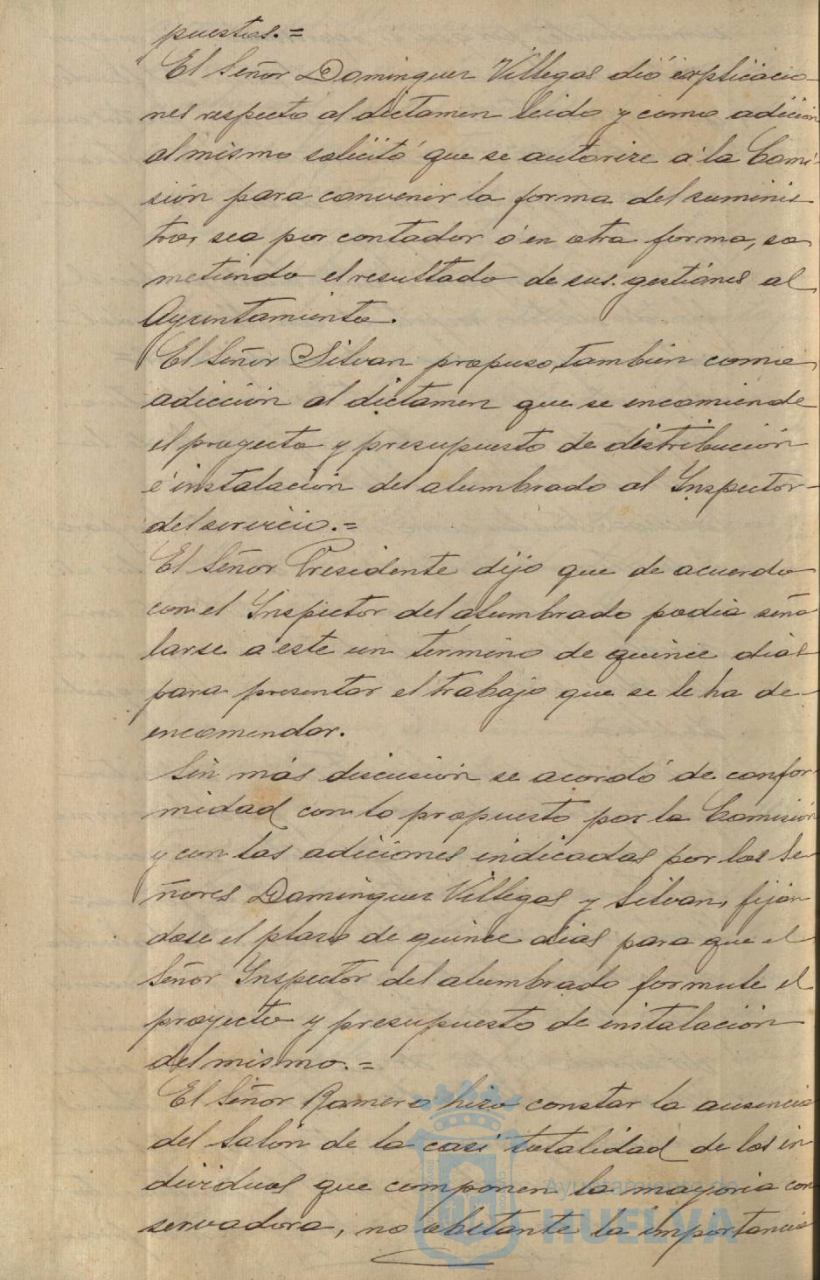 puestas.=
El Señor Dominguez Villegas dió explicacio-
nes respecto al dictamen leido y como adición
al mismo solicitó que se autorize á la Comi-
sión para convenir la forma del suminis
tro, sea por contador ó en otra forma, so
metiendo el resultado de sus gestiones al
Ayuntamiento.
El Señor Silvan propuso, también como
adicción al dictamen que se encomiende
el proyecto y presupuesto de distribución
é instalación del alumbrado al Inspector-
del servicio.=
El Señor Presidente dijo que de acuerdo
con el Inspector del alumbrado podia seña
larse a este un término de quince dias
para presentar el trabajo que se le ha de-
encomendar.
Sin más discusión se acordó de confor-
midad con lo propuesto por la Comisión
y con las adiciones indicadas por los Se-
ñores Dominguez Villegas y Silvan, fijan
dose el plazo de quince dias para que el
Señor Inspector del alumbrado formule el
proyecto y presupuesto de instalación
del mismo.=
El Señor Romero hizo constar la ausencia
del Salón de la casi totalidad de los in
dividuos que componen la mayoria con
servadora, no obstante la importancia
Ayuntamiento de
HUELVA